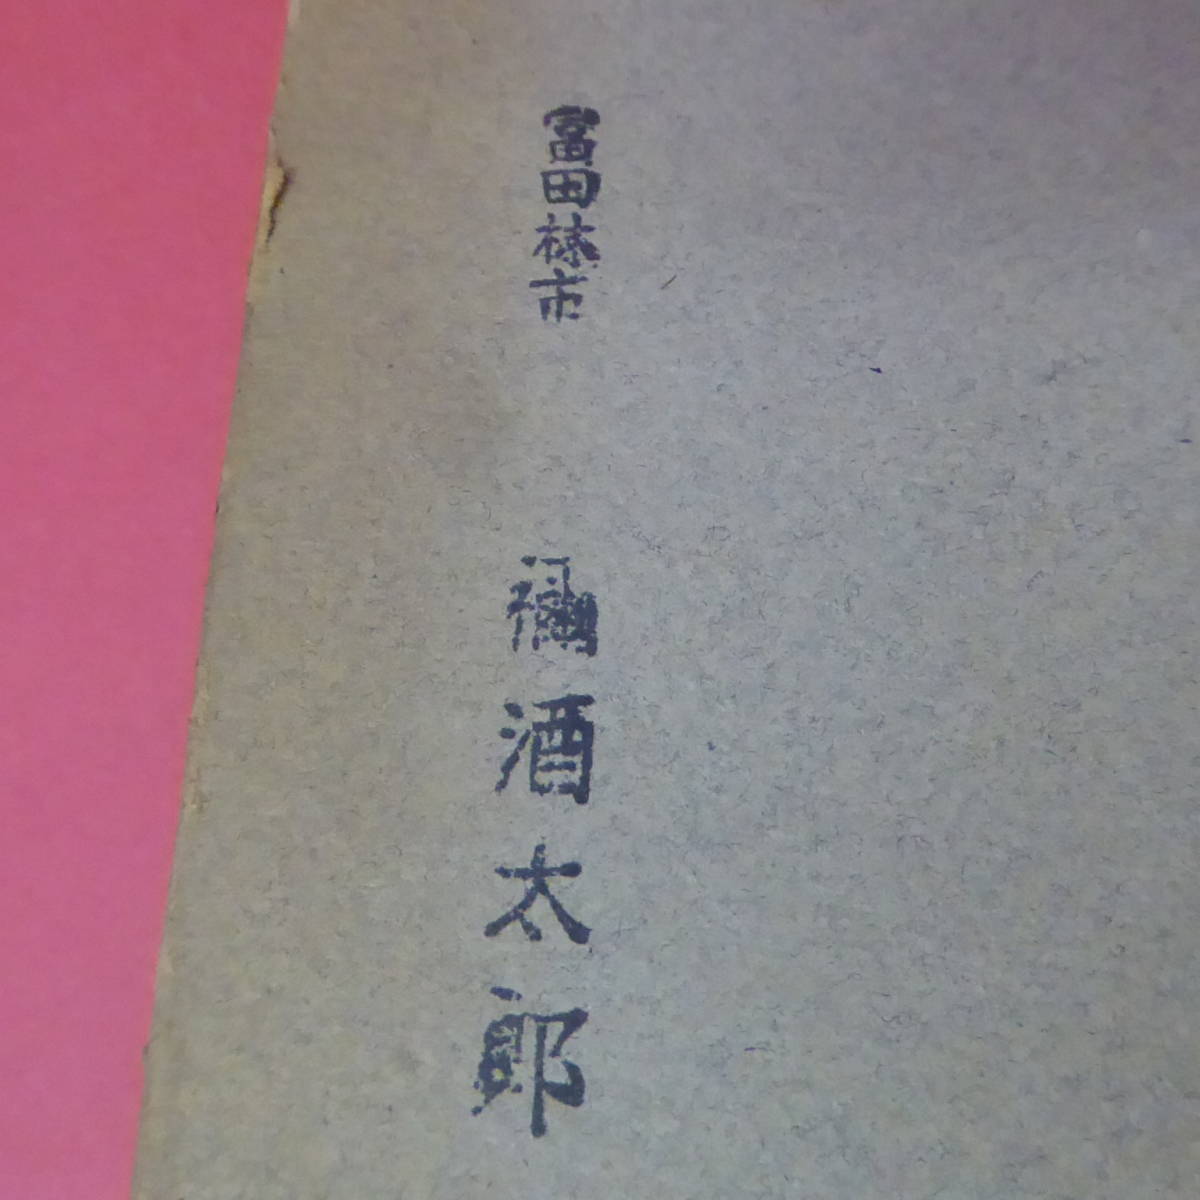 富田林市
橘酒太郎